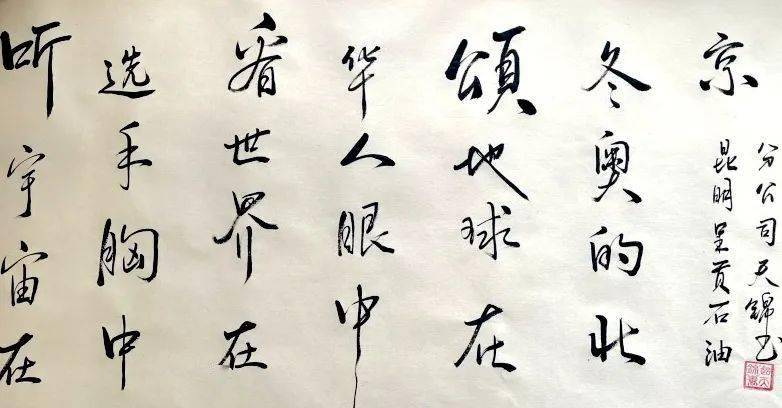 听宇宙在
选手胸中
看世界在
华人眼中
頌地球在
冬奥的北
京
昆明呈贡石油
分公司天锦书